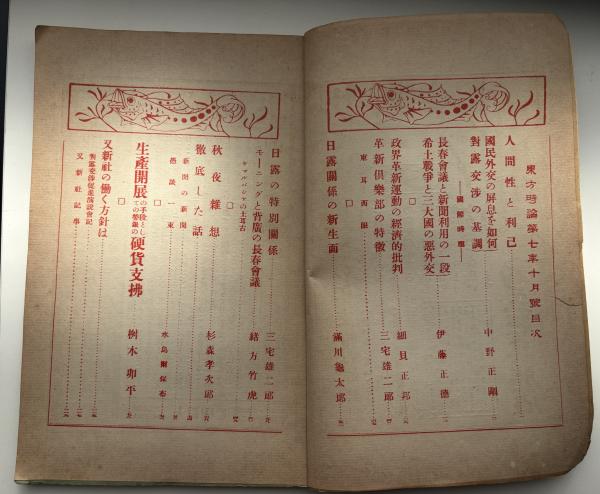 東方時論第七年十月號目次
人間性と利己
國民外交の屏息を如何
對露交渉の基調
中野正剛
國際時事
長春會議と新聞利用の一段
希土戰爭と三大國の惡外交
伊藤正德
政界革新運動の經濟的批判
細貝正邦
革新俱樂部の特徵
三宅雄二郎
東耳西眼
日露關係の新生面
滿川龜太郎
日露の特別關係
三宅雄二郎
モーニングと背廣の長春會議
緒方竹虎
ケマルパシャの土耳古
秋夜雜想
杉森孝次郎
徹底した話
新聞の新聞
愚談一束
水島爾保布
生產開展の手段としての勞銀の硬貨支拂
樹木卯平
又新社の働く方針は
對露交涉促進演說會記
又新社記事